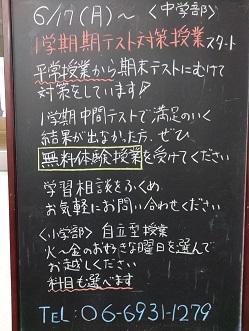 6/17(月)～ 〈中学部〉
1学期期末テスト対策授業スタート
平常授業から期末テストにむけて
対策をしています♪
1学期中間テストで満足のいく
結果が出なかった方、ぜひ、
無料体験授業を受けてください
学習相談をふくめ、
お気軽にお問い合わせください
〈小学部〉自立型授業
火～金のお好きな曜日を選んで
お越しください
科目も選べます
TEL:06-6931-1279